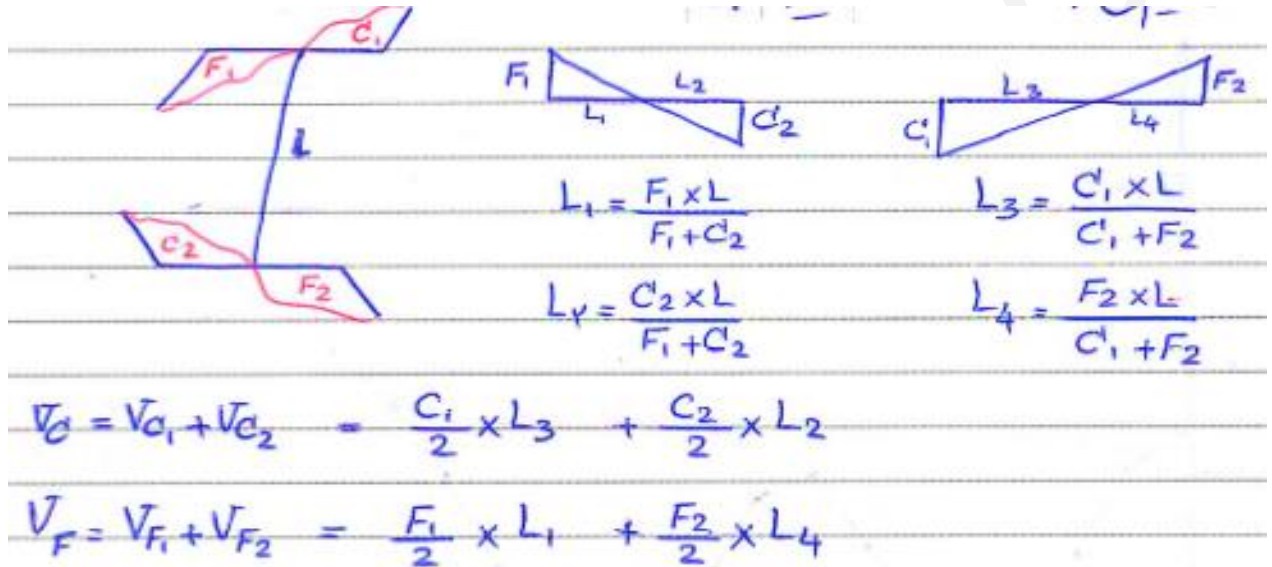 C₁
F₁
L
C₂
F₂
F₁ L₁ L₂ C₂
C₁ L₃ L₄ F₂
L₁ = F₁ × L / F₁ + C₂
L₃ = C₁ × L / C₁ + F₂
L٢ = C₂ × L / F₁ + C₂
L₄ = F₂ × L / C₁ + F₂
V_C = V_C₁ + V_C₂ = C₁/2 × L₃ + C₂/2 × L₂
V_F = V_F₁ + V_F₂ = F₁/2 × L₁ + F₂/2 × L₄